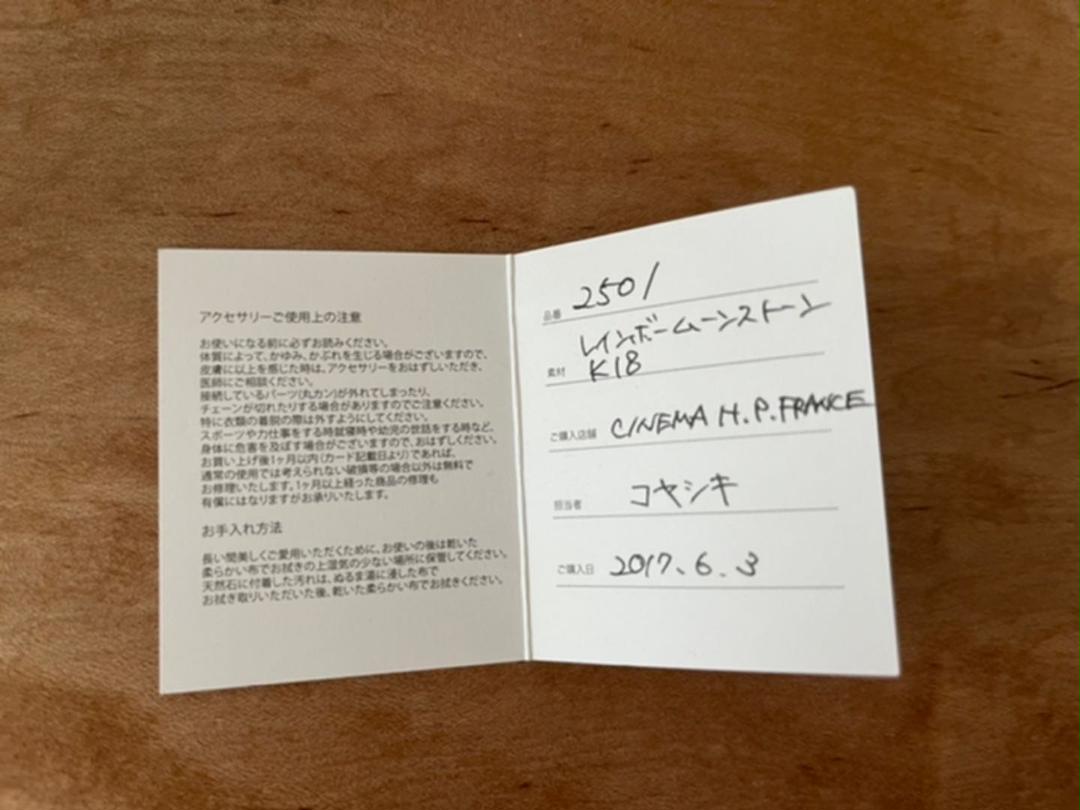 アクセサリーご使用上の注意
お使いになる前に必ずお読みください。
体質によって、かゆみ、かぶれを生じる場合がございますので、
皮膚に以上を感じた時は、アクセサリーをおはずしいただき、
医師にご相談ください。
接続しているパーツ(丸カン)が外れてしまったり、
チェーンが切れたりする場合がありますのでご注意ください。
特に衣類の着脱の際は外すようにしてください。
スポーツや力仕事をする時就寝時や幼児の世話をする時など、
身体に危害を及ぼす場合がございますので、おはずしください。
お買い上げ後1ヶ月以内(カード記載日より)であれば、
通常の使用では考えられない破損等の場合以外は無料で
お修理いたします。1ヶ月以上経った商品の修理も
有償にはなりますがお承りいたします。
お手入れ方法
長い間美しくご愛用いただくために、お使いの後は乾いた
柔らかい布でお拭きの上湿気の少ない場所に保管してください。
天然石に付着した汚れは、ぬるま湯に浸した布で
お拭き取りいただいた後、乾いた柔らかい布でお拭きください。
品番 2501
レインボームーンストーン
素材 K18
ご購入店舗 CINEMA H.P.FRANCE
担当者 コヤシキ
ご購入日 2017.6.3